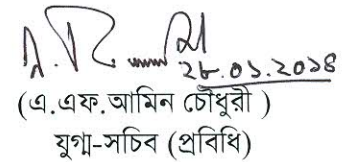 ২৮.০১.২০১৪
(এ.এফ.আমিন চৌধুরী )
যুগ্ম-সচিব (প্রবিধি)